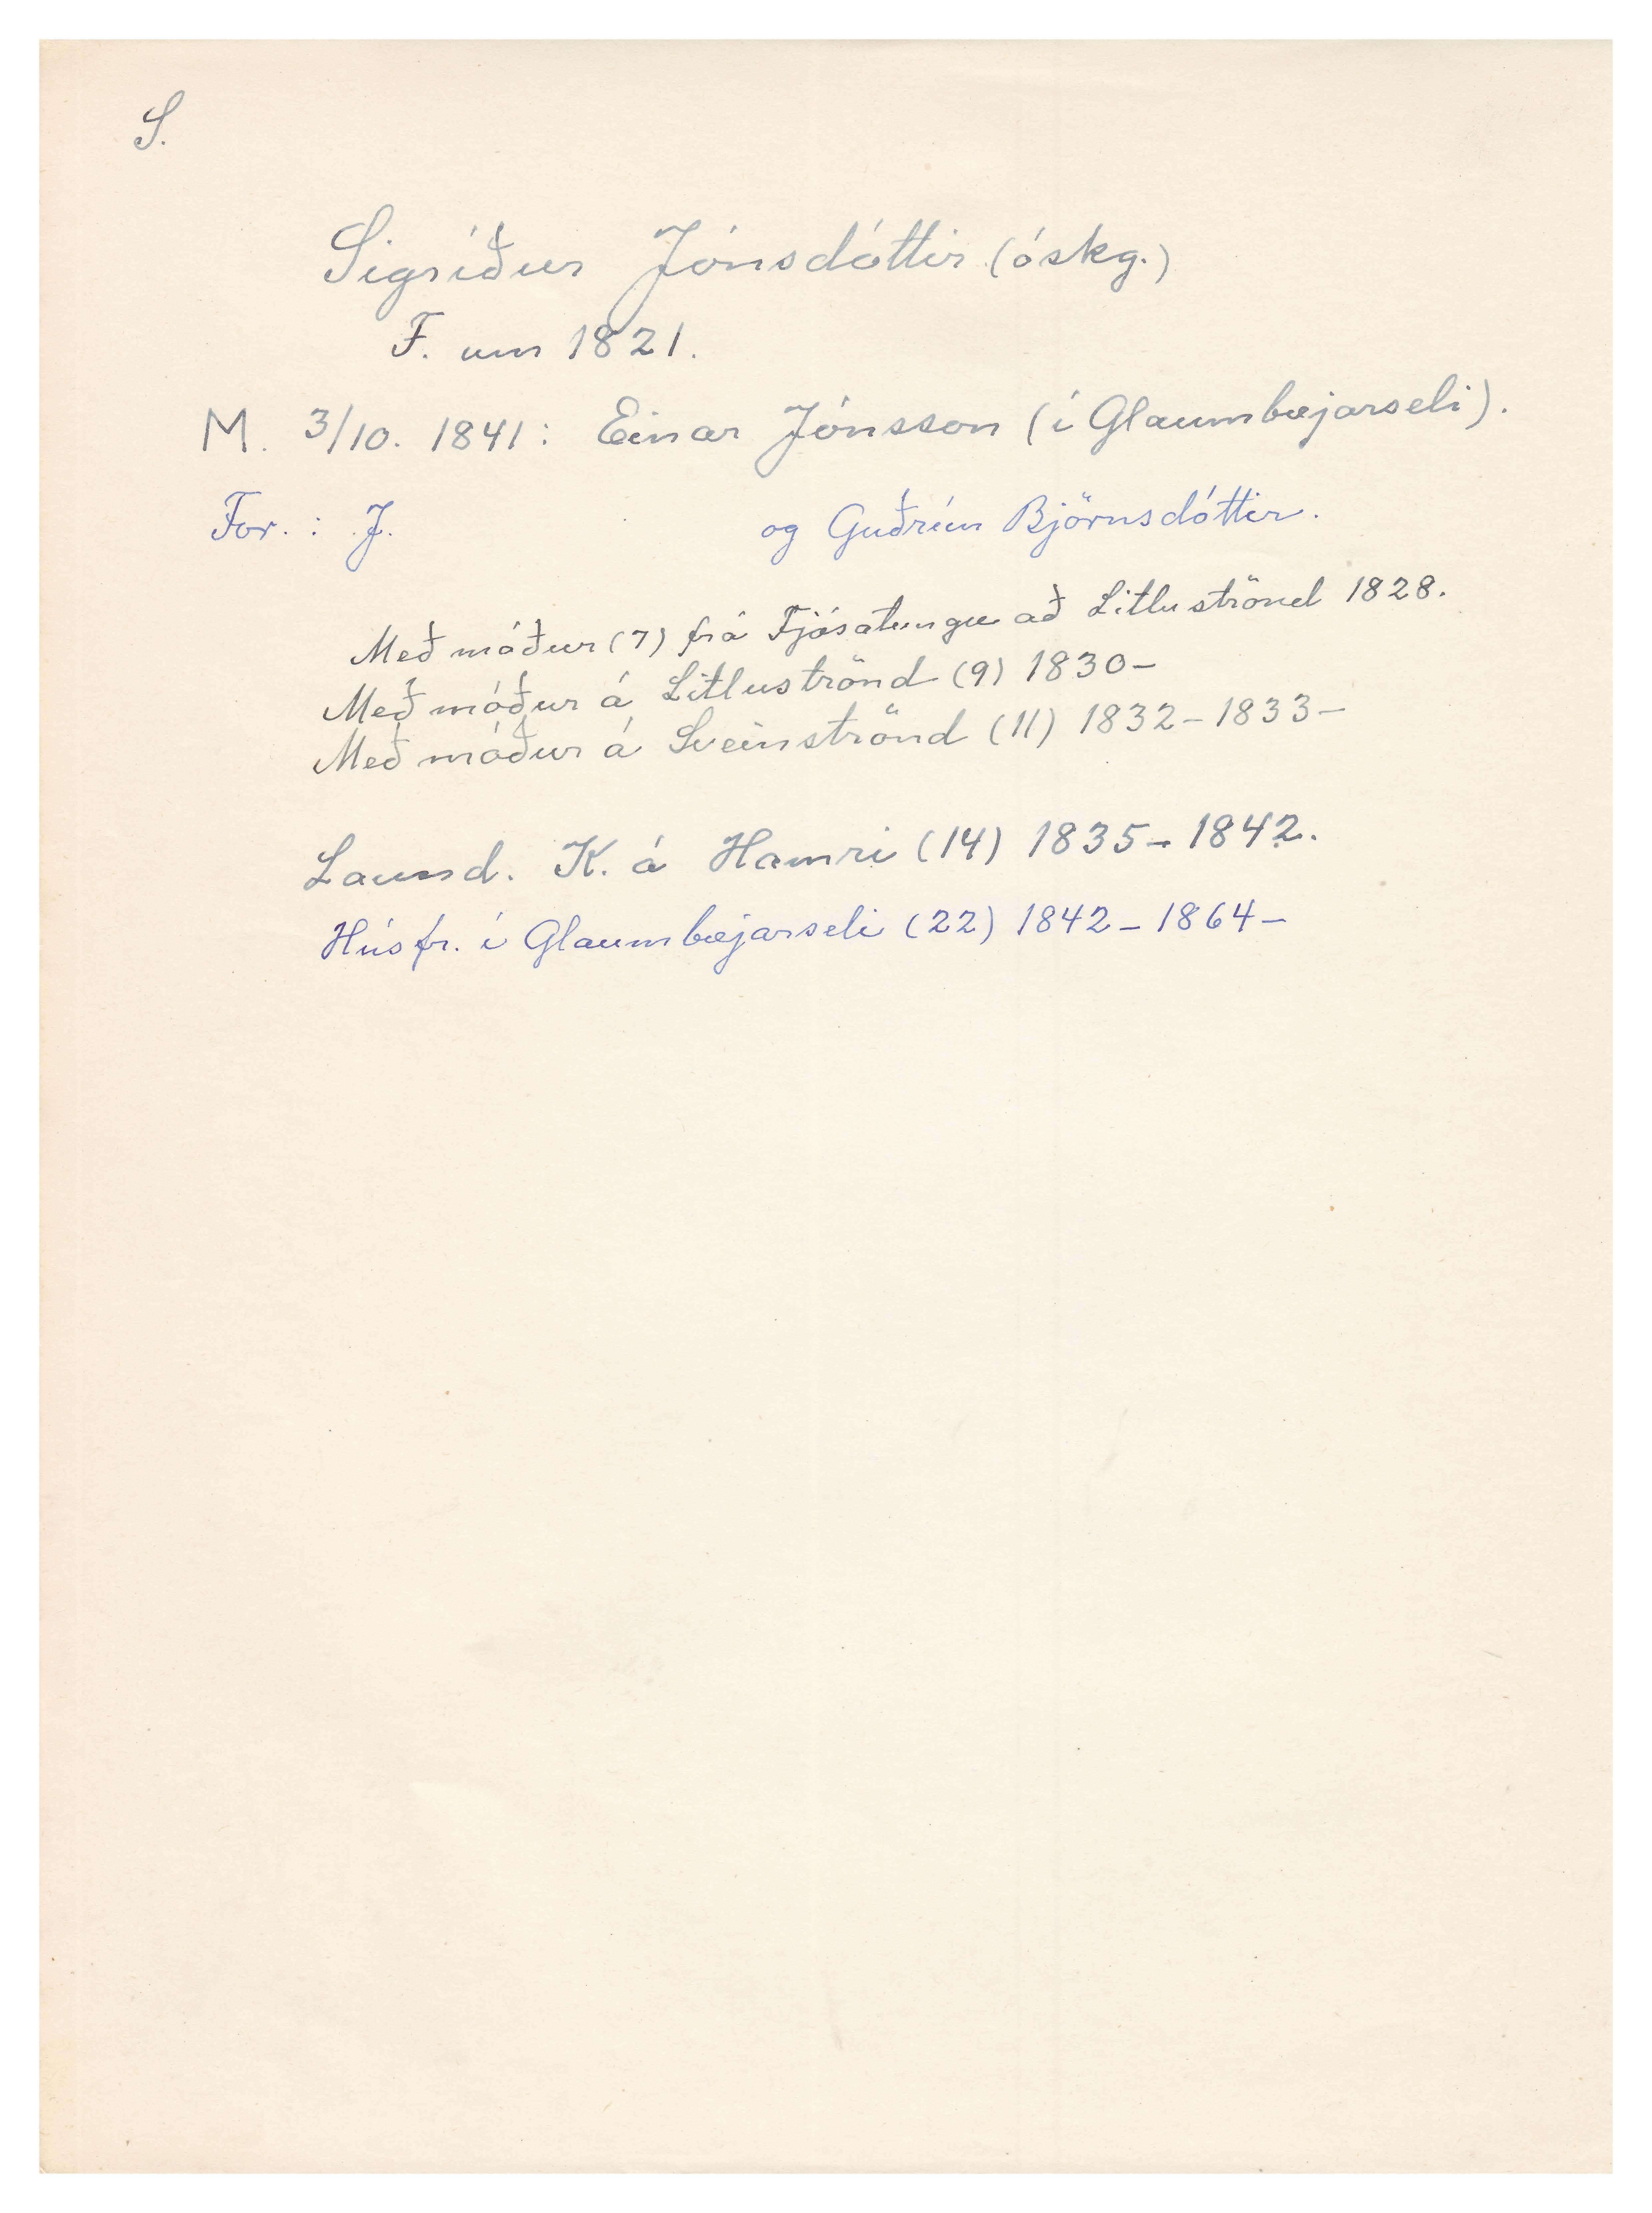 S.
Sigríður Jónsdóttir (óskg.)
F. um 1821.
M. 3/10. 1841: Einar Jónsson (í Glaumbæjarseli).
For. : J. og Guðrún Björnsdóttir.
Með móður (7) frá Fjósatungu að Litluströnd 1828.
Með móður á Litluströnd (9) 1830-
Með móður á Sveinströnd (11) 1832-1833-
Laund. K. á Hamri (14) 1835-1842.
Húsfr. í Glaumbæjarseli (22) 1842-1864-